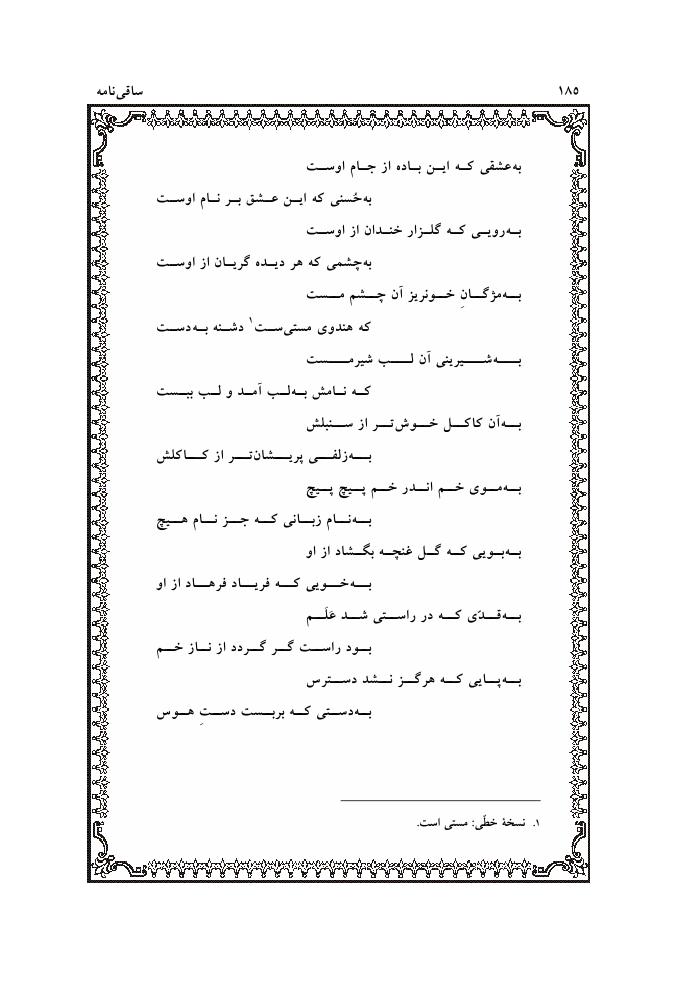 ۱۸۵
ساقی‌نامه
به‌عشقی که این باده از جام اوست
به‌حُسنی که این عشق بر نام اوست
به‌رویی که گلزار خندان از اوست
به‌چشمی که هر دیده گریان از اوست
به‌مژگانِ خونریز آن چشم مست
که هندوی مستی‌ست۱ دشنه به‌دست
به‌شیرینی آن لب شیرمست
که نامش به‌لب آمد و لب ببست
به‌آن کاکل خوش‌تر از سنبلش
به‌زلفی پریشان‌تر از کاکلش
به‌موی خم اندر خم پیچ پیچ
به‌نام زبانی که جز نام هیچ
به‌بویی که گل غنچه بگشاد از او
به‌خویی که فریاد فرهاد از او
به‌قدّی که در راستی شد عَلَم
بود راست گر گردد از ناز خم
به‌پایی که هرگز نشد دسترس
به‌دستی که بربست دستِ هوس
۱. نسخهٔ خطّی: مستی است.